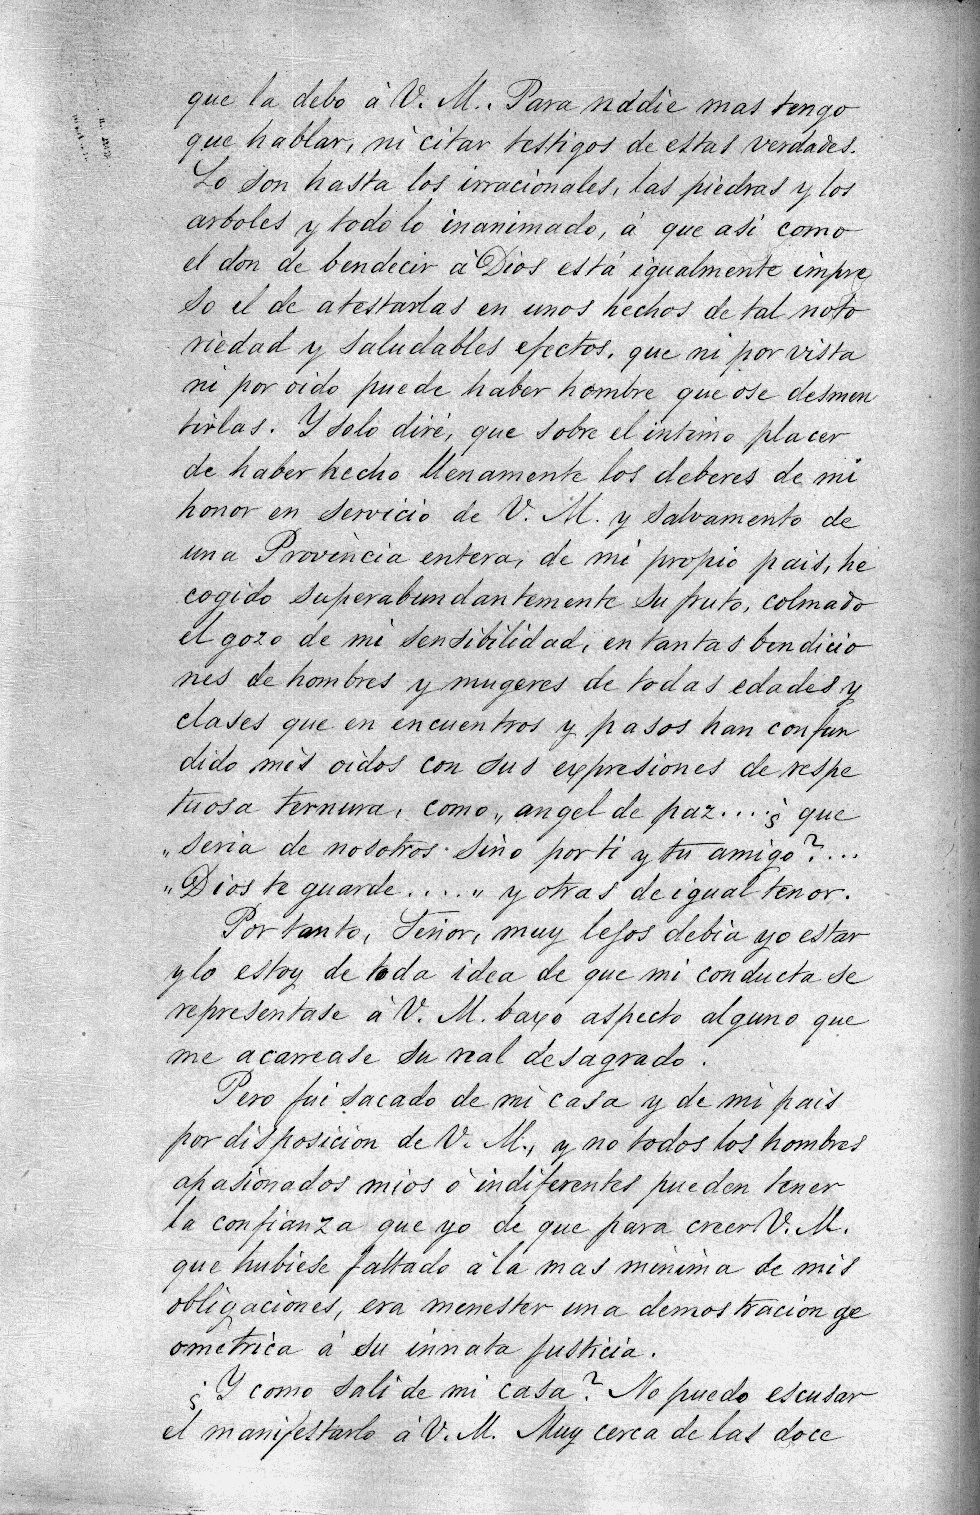 que la debo à V. M.. Para naddie mas tengo
que hablar, ni citar testigos de estas verdades.
Lo son hasta los irracionales, las piedras y los
arboles y todo lo inanimado, á que asi como
el don de bendecir à Dios está igualmente impre
so el de atestarlas en unos hechos de tal noto
riedad y saludables efectos, que ni por vista
ni por oido puede haber hombre que ose desmen
tirlas. Y solo diré, que sobre el intimo placer
de haber hecho llenamente los deberes de mi
honor en servicio de V. M. y salvamento de
una Provincia entera, de mi propio pais, he
cogido superabundantemente su fruto, colmado
el gozo de mi sensibilidad, en tantas bendicio
nes de hombres y mugeres de todas edades y
clases que en encuentros y pasos han confun
dido mis oidos con sus expresiones de respe
tuosa ternura, como „ angel de paz....¿ que
„ seria de nosotros sino por ti y tu amigo?...
„ Dios te guarde..... „ y otras de igual tenor.
Por tanto, Señor, muy lejos debia yo estar
y lo estoy de toda idea de que mi conducta se
representase à V. M. bayo aspecto alguno que
me acarrease su real desagrado.
Pero fui sacado de mi casa y de mi pais
por disposicion de V. M., y no todos los hombres
apasionados mios ó indiferentes pueden tener
la confianza que yo de que para creer V. M.
que hubiese faltado à la mas minima de mis
obligaciones, era menester una demostracion ge
ometrica á su innata justicia.
¿Y como sali de mi casa? No puedo escusar
el manifestarlo á V. M. Muy cerca de las doce